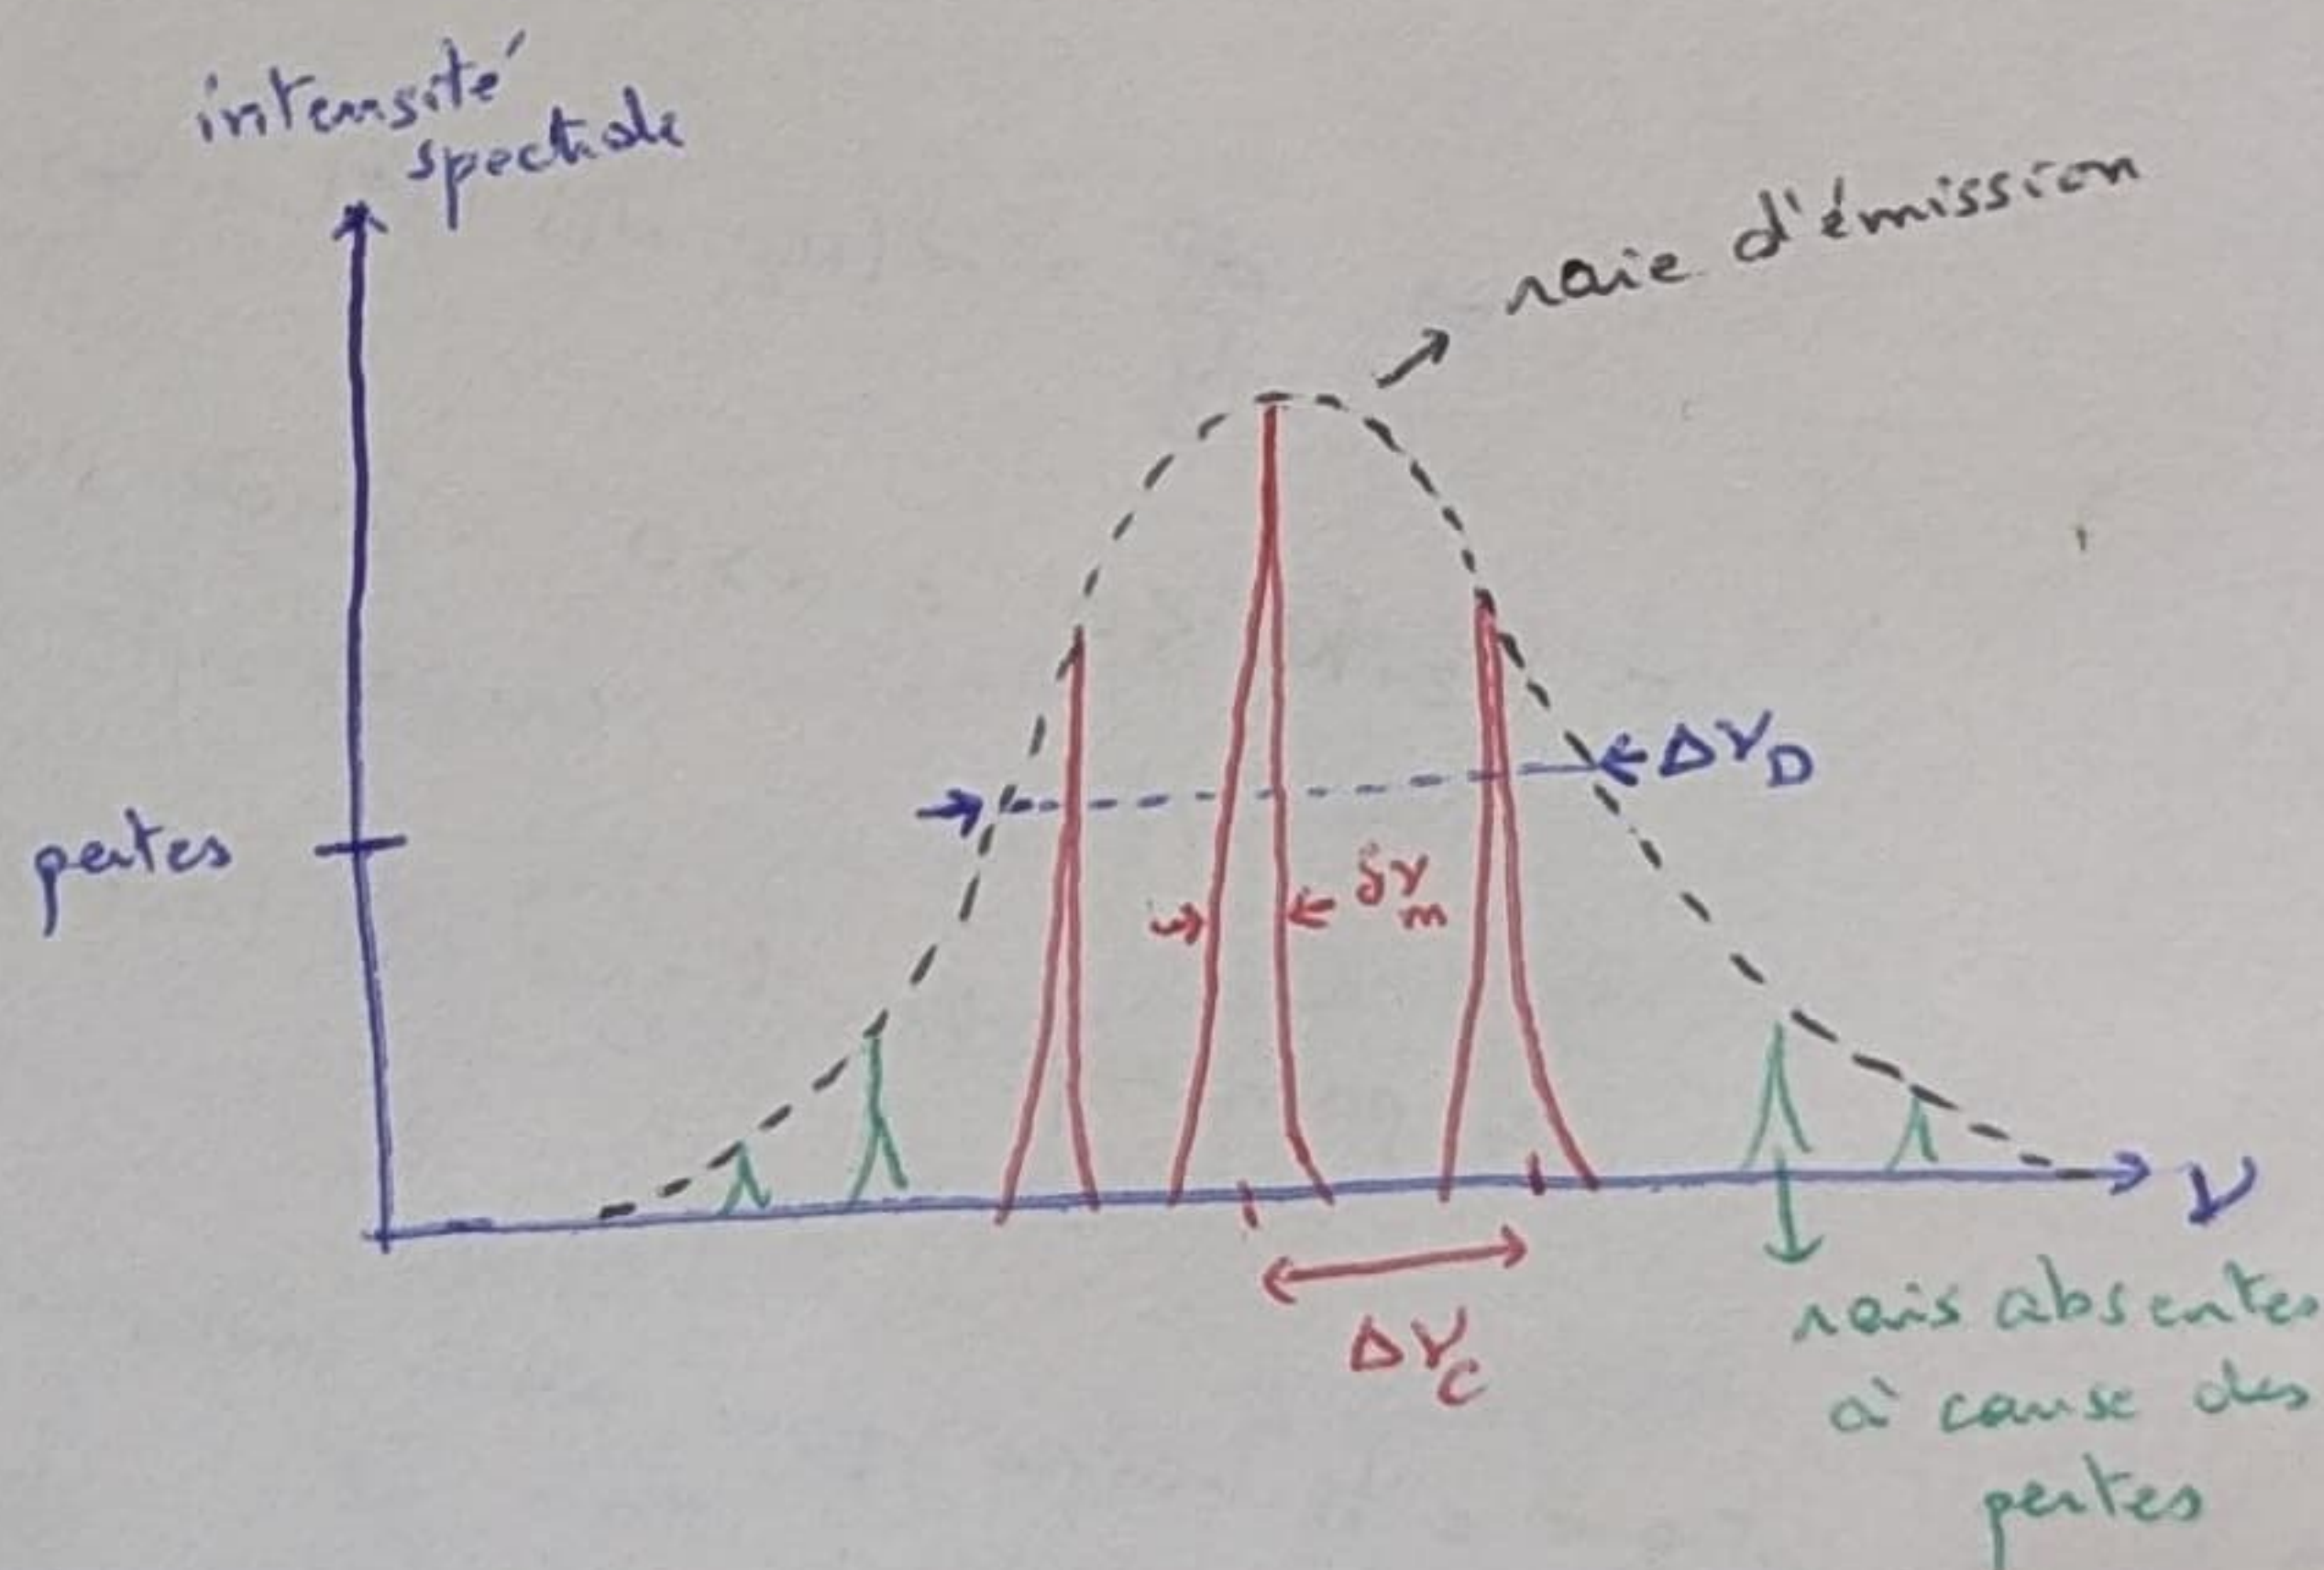 intensité
spectrale
raie d'émission
ΔνD
pertes
δνm
ν
Δνc
rais absentes
à cause des
pertes